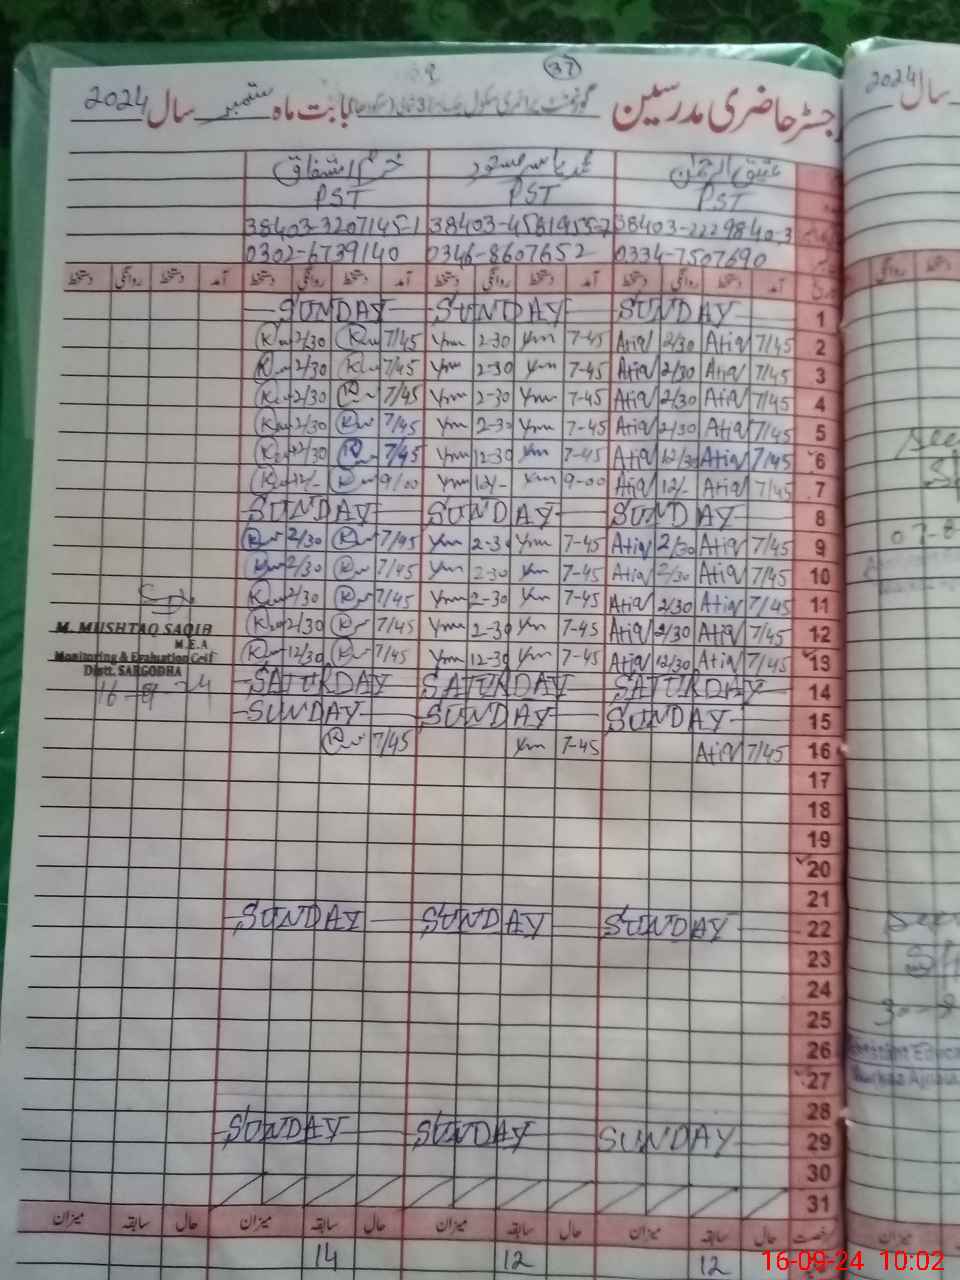 37
رجسٹر حاضری مدرسین گورنمنٹ پرائمری سکول بابت ماہ ستمبر سال 2024
عتیق الرحمٰن خرم اشفاق
PST PST PST
38403-2229840-3 38403-3207145-1
0334-7507690 0346-8607652 0302-6739140
آمد دستخط روانگی دستخط آمد دستخط روانگی دستخط آمد دستخط روانگی دستخط آمد دستخط روانگی دستخط
SUNDAY SUNDAY SUNDAY 1
2/30 7/45 Ym 2-30 Ym 7-45 Atiq 2/30 Atiq 7/45 2
2/30 7/45 Ym 2-30 Ym 7-45 Atiq 2/30 Atiq 7/45 3
2/30 7/45 Ym 2-30 Ym 7-45 Atiq 2/30 Atiq 7/45 4
2/30 7/45 Ym 2-30 Ym 7-45 Atiq 2/30 Atiq 7/45 5
12/30 7/45 Ym 12-30 Ym 7-45 Atiq 12/30 Atiq 7/45 6
12/- 9/00 Ym 12/- Ym 9-00 Atiq 12/- Atiq 7/45 7
SUNDAY SUNDAY SUNDAY 8
2/30 7/45 Ym 2-30 Ym 7-45 Atiq 2/30 Atiq 7/45 9
2/30 7/45 Ym 2-30 Ym 7-45 Atiq 2/30 Atiq 7/45 10
2/30 7/45 Ym 2-30 Ym 7-45 Atiq 2/30 Atiq 7/45 11
2/30 7/45 Ym 2-30 Ym 7-45 Atiq 2/30 Atiq 7/45 12
12/30 7/45 Ym 12-30 Ym 7-45 Atiq 12/30 Atiq 7/45 13
SATURDAY SATURDAY SATURDAY 14
SUNDAY SUNDAY SUNDAY 15
7/45 Ym 7-45 Atiq 7/45 16
17
18
19
20
21
SUNDAY SUNDAY SUNDAY 22
23
24
25
26
27
28
SUNDAY SUNDAY SUNDAY 29
30
31
رخصت حال سابقہ میزان حال سابقہ میزان حال سابقہ میزان حال سابقہ میزان
14 12 12
M. MUSHTAQ SAQIB
M.E.A
Monitoring & Evaluation Cell
Distt. SARGODHA
16-9-24
سال 2024
دستخط روانگی
16-09-24 10:02